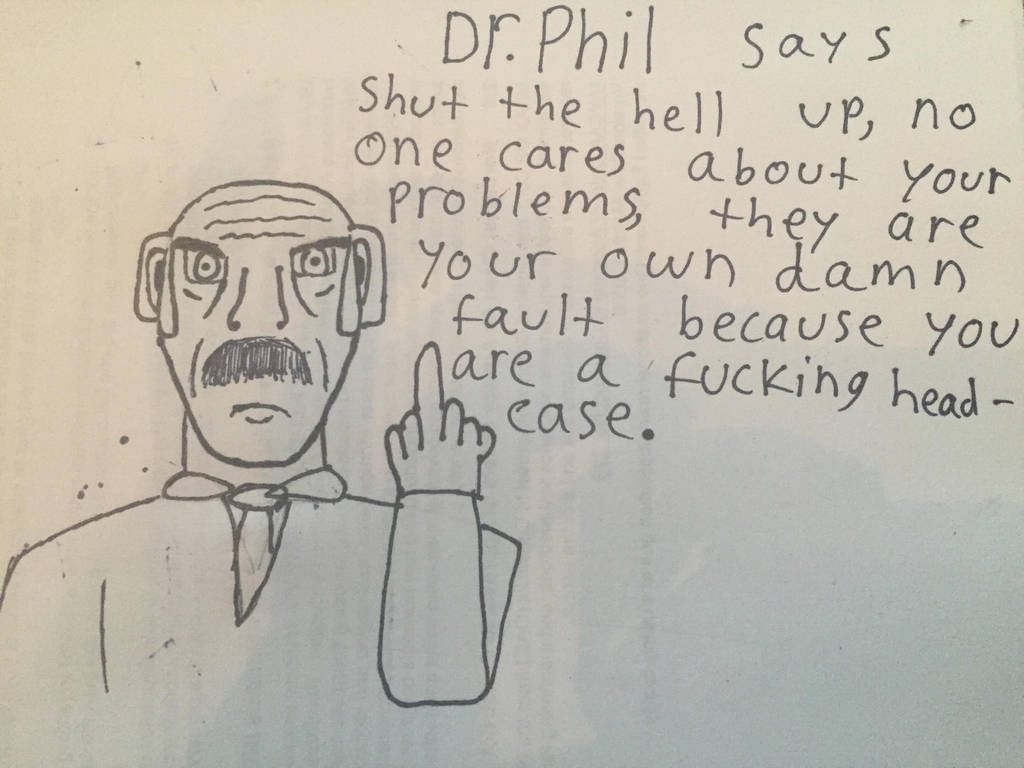 Dr. Phil says
Shut the hell up, no
one cares about your
problems, they are
your own damn
fault because you
are a fucking head-
case.